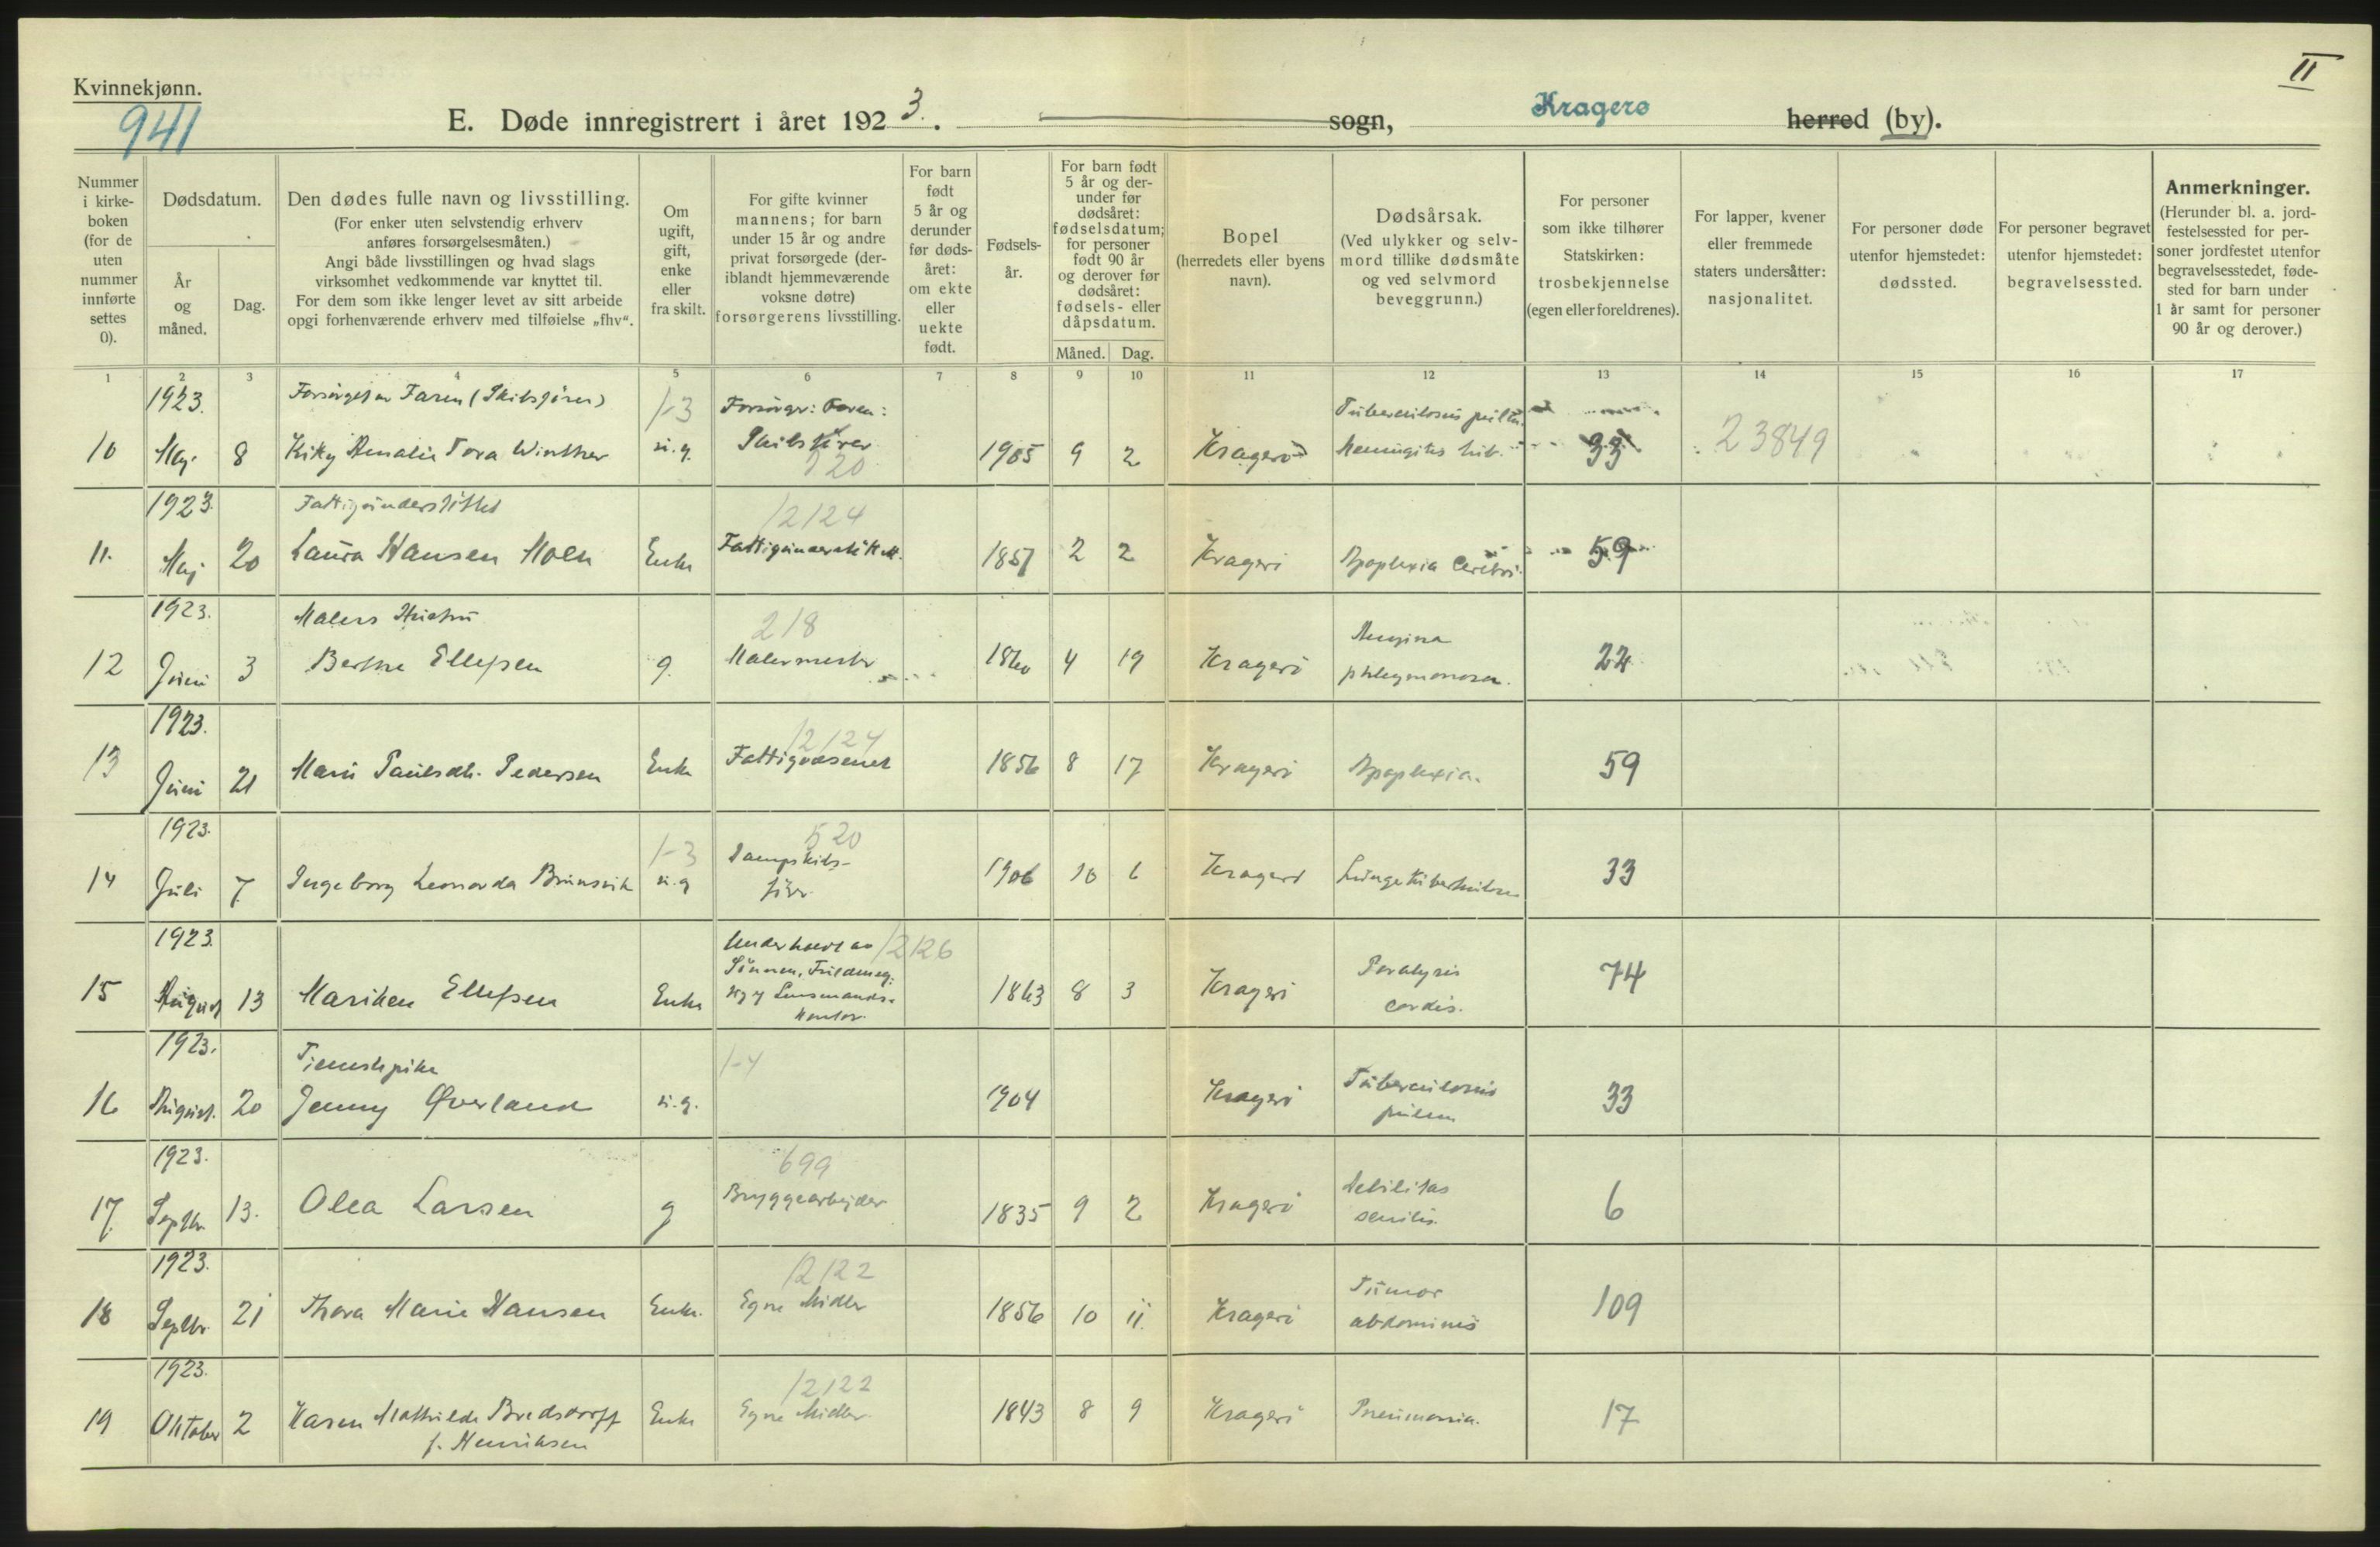 II
Kvinnekjønn.
941
E. Døde innregistrert i året 1923. sogn, Kragerø herred (by).
Nummer i kirkeboken (for de uten nummer innførte settes 0).
Dødsdatum.
År og måned.
Dag.
Den dødes fulle navn og livsstilling.
(For enker uten selvstendig erhverv anføres forsørgelsesmåten.)
Angi både livsstillingen og hvad slags virksomhet vedkommende var knyttet til.
For dem som ikke lenger levet av sitt arbeide opgi forhenværende erhverv med tilføielse „fhv“.
Om ugift, gift, enke eller fra skilt.
For gifte kvinner mannens; for barn under 15 år og andre privat forsørgede (deriblandt hjemmeværende voksne døtre) forsørgerens livsstilling.
For barn født 5 år og derunder før dødsåret: om ekte eller uekte født.
Fødselsår.
For barn født 5 år og derunder før dødsåret: fødselsdatum; for personer født 90 år og derover før dødsåret: fødsels- eller dåpsdatum.
Måned. Dag.
Bopel (herredets eller byens navn).
Dødsårsak.
(Ved ulykker og selvmord tillike dødsmåte og ved selvmord beveggrunn.)
For personer som ikke tilhører Statskirken: trosbekjennelse (egen eller foreldrenes).
For lapper, kvener eller fremmede staters undersåtter: nasjonalitet.
For personer døde utenfor hjemstedet: dødssted.
For personer begravet utenfor hjemstedet: begravelsessted.
Anmerkninger.
(Herunder bl. a. jordfestelsessted for personer jordfestet utenfor begravelsesstedet, fødested for barn under 1 år samt for personer 90 år og derover.)
1 2 3 4 5 6 7 8 9 10 11 12 13 14 15 16 17
1923. Faren (Skibsfører) 1-3 Forsørger: Faren: Tuberculosis pulm.
10 Maj 8 Kiky Amalie Tora Winther u.g. Skibsfører 520 1905 9 2 Kragerø Meningitis tub. 33 23849
1923. Fattigunderstøttet 12124
11. Maj 20 Laura Hansen Moen Enke Fattigunderstøttet. 1857 2 2 Kragerø Apoplexia Cerebri. 59
1923. Malers Hustru 218 Angina
12 Juni 3 Berthe Ellefsen g. Malermester 1860 4 19 Kragerø phlegmonosa. 22
1923. 12124
13 Juni 21 Maren Paulsdt. Pedersen Enke Fattigvæsenet 1856 8 17 Kragerø Apoplexia. 59
1923. 1-3 520
14 Juli 7. Ingeborg Leonarda Brunsvik u.g Dampskibsfører 1906 10 6 Kragerø Lungetuberkulose 33
1923. Underholdt av 12126
15 August 13 Mariken Ellefsen Enke Sønnen, Fuldmeg. Lensmandskontor. 1863 8 3 Kragerø Paralysis cordis. 74
1923. Tjenestepike 1-4
16 August. 20 Jenny Øverland u.g. 1904 Kragerø Tuberculosis pulm 33
1923. 699
17. Septbr. 13. Olea Larsen g Bryggearbejder 1835 9 2 Kragerø Debilitas senilis. 6
1923. 12122
18 Septbr. 21 Thora Marie Hansen Enke. Egne Midler 1856 10 11. Kragerø Tumor abdominis 109
1923. 12122
19 Oktober 2 Karen Mathilde Bredsdorff Enke Egne Midler. 1843 8 9 Kragerø Pneumonia. 17
f. Henriksen